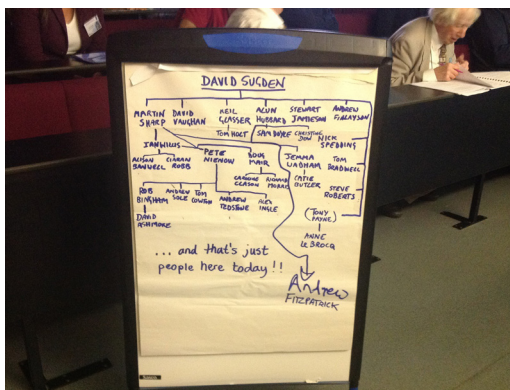 DAVID SUGDEN
MARTIN SHARP DAVID VAUGHAN NEIL GLASSER ALUN HUBBARD STEWART JAMIESON ANDREW FINLAYSON
TOM HOLT SAM DOYLE CHRISTINE DOW NICK SPEDDING
IAN WILLIS PETE NIENOW DOUG MAIR JEMMA WADHAM TOM BRADWELL
ALISON BANWELL CIARAN ROBB CAROLINE CLASON RICHARD CATIE BUTLER STEVE ROBERTS
ROB BINGHAM ANDREW SOLE TOM COWTON ANDREW TEDSTONE ALEX INGLE
(TONY PAYNE)
DAVID ASHMORE
ANNE LE BROCQ
... and that's just
people here today!!
Andrew
FITZPATRICK